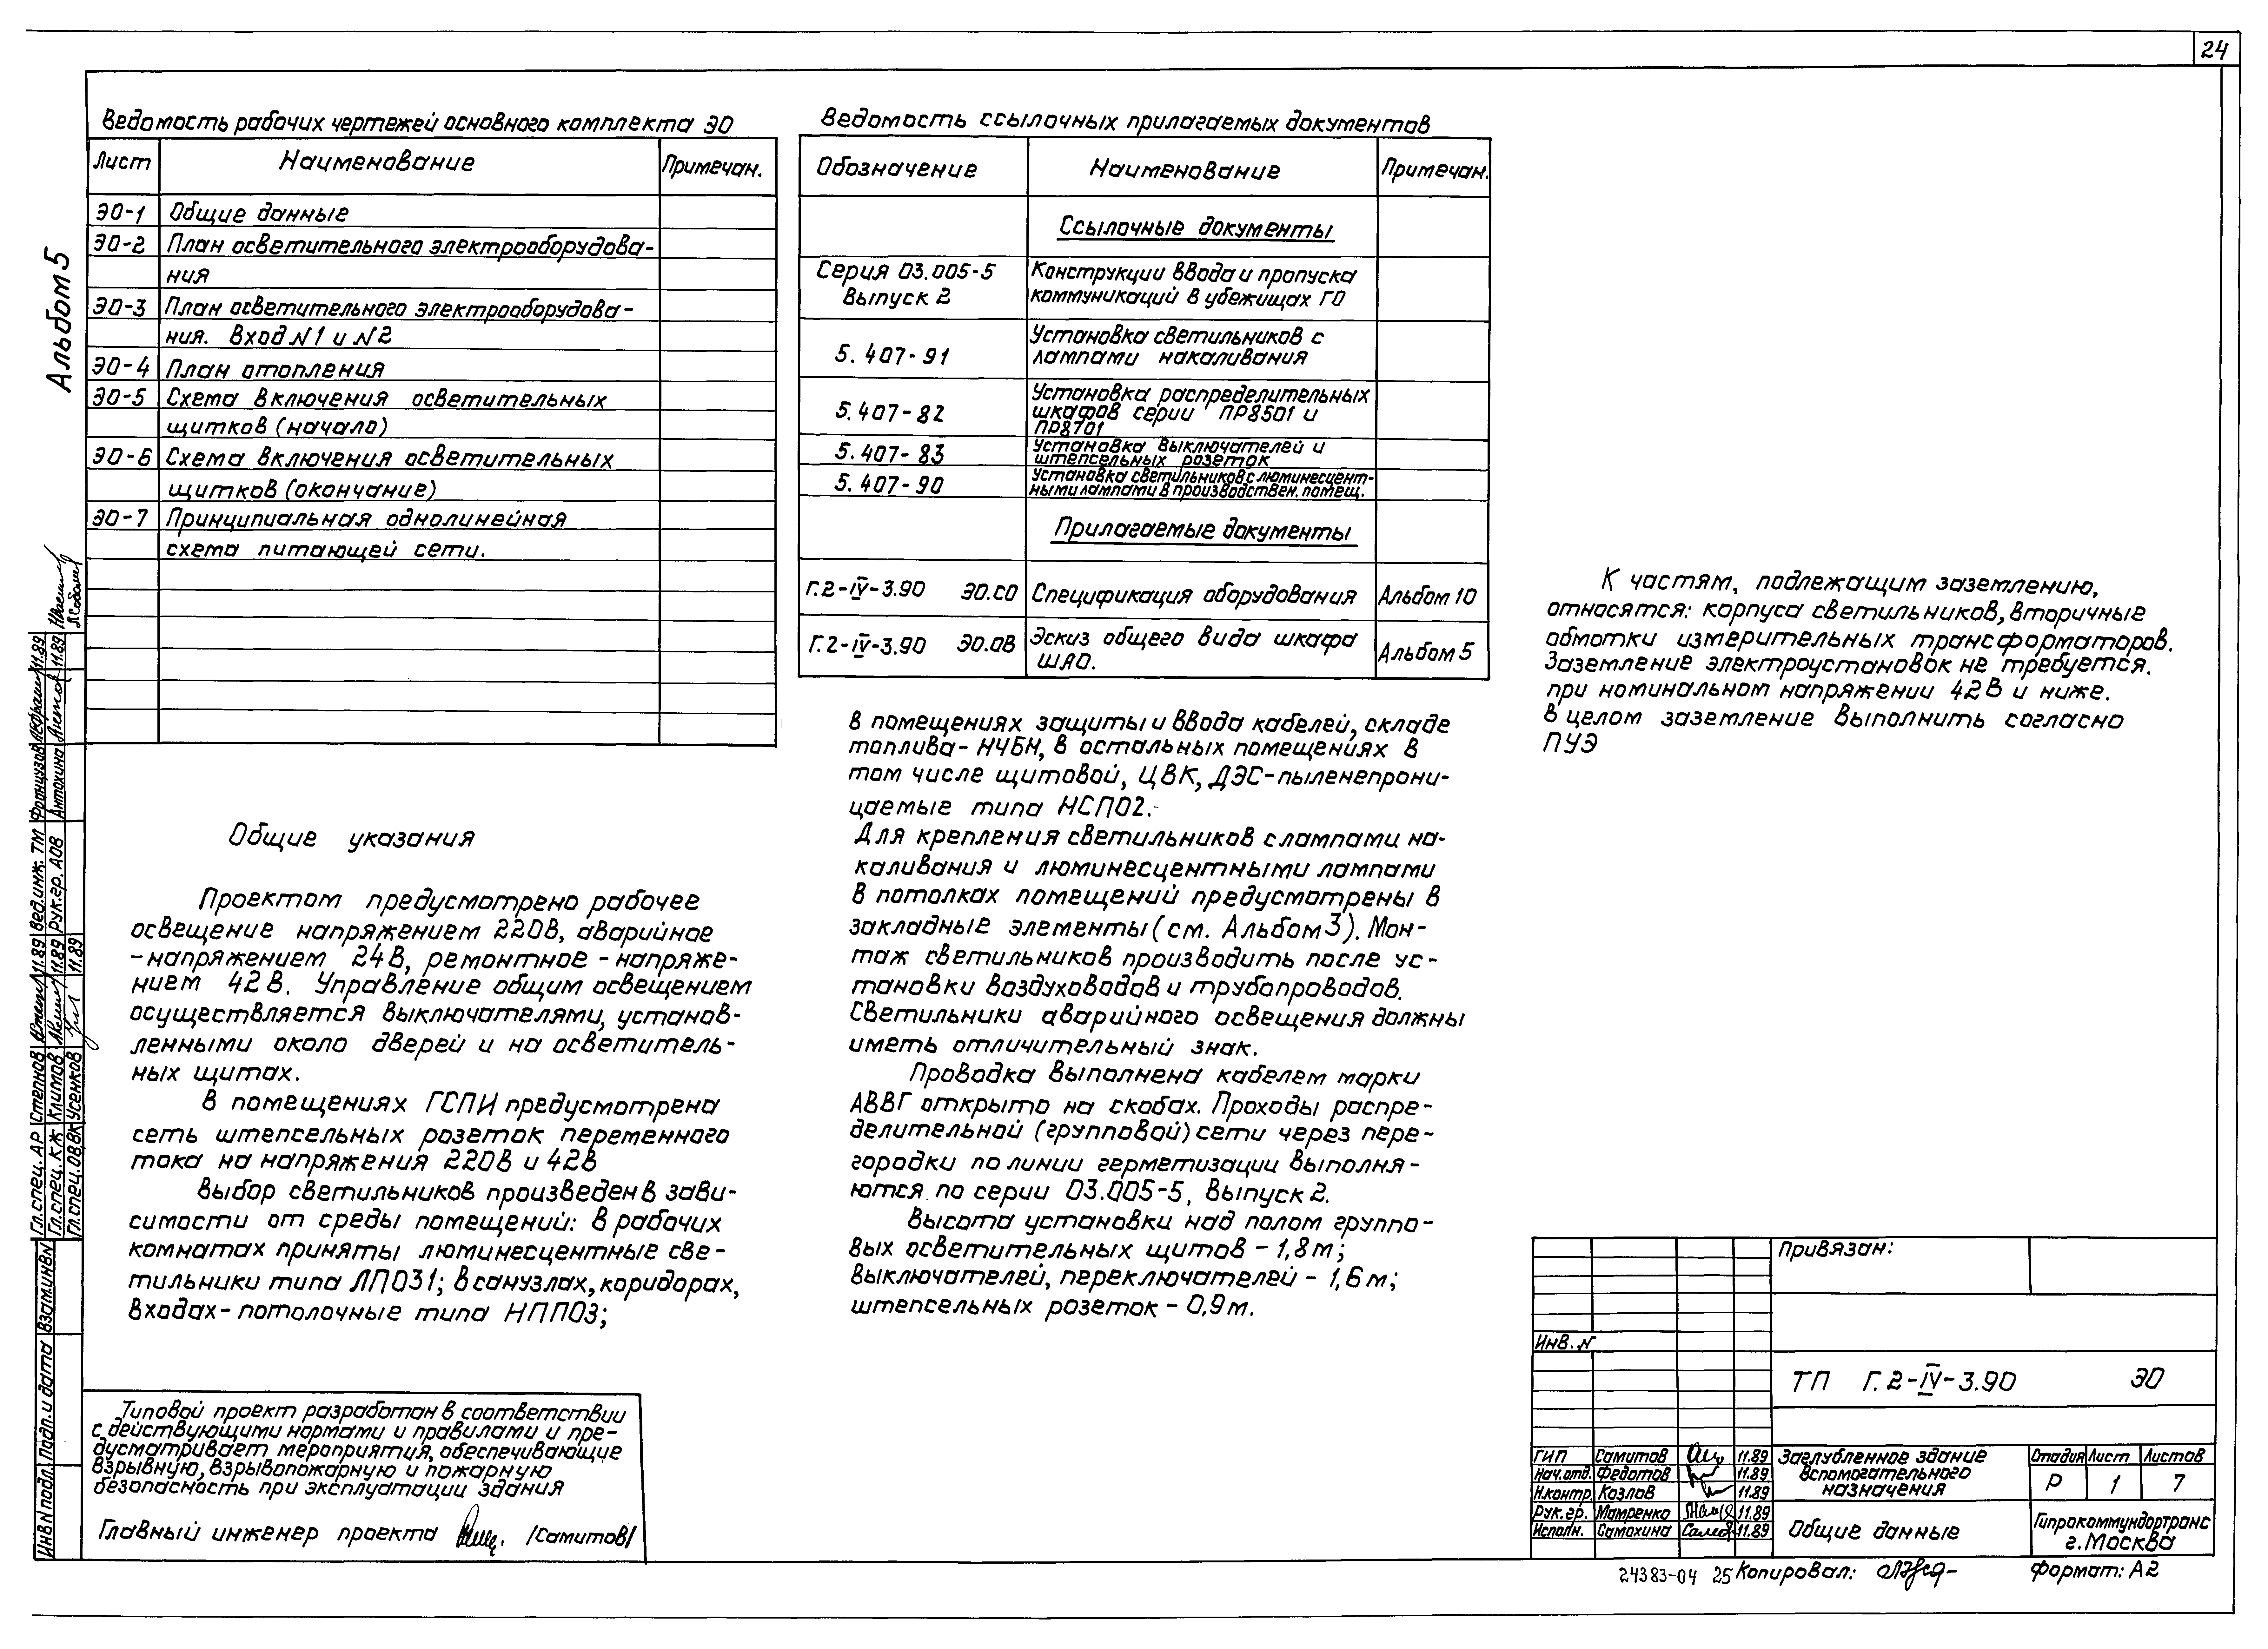 24
Альбом 5
Ведомость рабочих чертежей основного комплекта ЭО
Лист Наименование Примечан.
ЭО-1 Общие данные
ЭО-2 План осветительного электрооборудова-
ния
ЭО-3 План осветительного электрооборудова-
ния. Вход N1 и N2
ЭО-4 План отопления
ЭО-5 Схема включения осветительных
щитков (начало)
ЭО-6 Схема включения осветительных
щитков (окончание)
ЭО-7 Принципиальная однолинейная
схема питающей сети.
Ведомость ссылочных прилагаемых документов
Обозначение Наименование Примечан.
Ссылочные документы
Серия 03.005-5 Конструкции ввода и пропуска
Выпуск 2 коммуникаций в убежищах ГО
5.407-91 Установка светильников с
лампами накаливания
5.407-82 Установка распределительных
шкафов серии ПР8501 и
ПР8701
5.407-83 Установка выключателей и
штепсельных розеток
5.407-90 Установка светильников с люминесцент-
ными лампами в производствен. помещ.
Прилагаемые документы
Г.2-IV-3.90 ЭО.СО Спецификация оборудования Альбом 10
Г.2-IV-3.90 ЭО.ОВ Эскиз общего вида шкафа Альбом 5
ШАО.
Общие указания
Проектом предусмотрено рабочее
освещение напряжением 220В, аварийное
-напряжением 24В, ремонтное - напряже-
нием 42В. Управление общим освещением
осуществляется выключателями, установ-
ленными около дверей и на осветитель-
ных щитах.
В помещениях ГСПИ предусмотрена
сеть штепсельных розеток переменного
тока на напряжения 220В и 42В
Выбор светильников произведен в зави-
симости от среды помещений: в рабочих
комнатах приняты люминесцентные све-
тильники типа ЛПО31; в санузлах, коридорах,
входах-потолочные типа НПП03;
в помещениях защиты и ввода кабелей, складе
топлива- НЧБН, в остальных помещениях в
том числе щитовой, ЦВК, ДЭС-пыленепрони-
цаемые типа НСП02.
Для крепления светильников с лампами на-
каливания и люминесцентными лампами
в потолках помещений предусмотрены в
закладные элементы (см. Альбом 3). Мон-
таж светильников производить после ус-
тановки воздуховодов и трубопроводов.
Светильники аварийного освещения должны
иметь отличительный знак.
Проводка выполнена кабелем марки
АВВГ открыто на скобах. Проходы распре-
делительной (групповой) сети через пере-
городки по линии герметизации выполня-
ются по серии 03.005-5, Выпуск 2.
Высота установки над полом группо-
вых осветительных щитов - 1,8 м;
выключателей, переключателей - 1,6 м;
штепсельных розеток - 0,9 м.
К частям, подлежащим заземлению,
относятся: корпуса светильников, вторичные
обмотки измерительных трансформаторов.
Заземление электроустановок не требуется.
при номинальном напряжении 42В и ниже.
В целом заземление выполнить согласно
ПУЭ
Типовой проект разработан в соответствии
с действующими нормами и правилами и пре-
дусматривает мероприятия, обеспечивающие
взрывную, взрывопожарную и пожарную
безопасность при эксплуатации здания
Главный инженер проекта /Самитов/
Гл.спец. АР Степнов 11.89 Вед.инж. ТМ Французов 11.89
Гл.спец. КЖ Климов 11.89 Рук.гр. АОВ Антохина 11.89
Гл.спец. ОВ,ВК Усенков 11.89
Инв N подл. Подп. и дата Взам.инв N
Привязан:
Инв. N
ТП Г.2-IV-3.90 ЭО
ГИП Самитов 11.89
Нач.отд. Федотов 11.89
Н.контр. Козлов 11.89
Рук.гр. Мамренко 11.89
Исполн. Самохина 11.89
Заглубленное здание
вспомогательного
назначения
Стадия Лист Листов
Р 1 7
Общие данные
Гипрокоммундортранс
г.Москва
24383-04 25 Копировал: Формат: А2